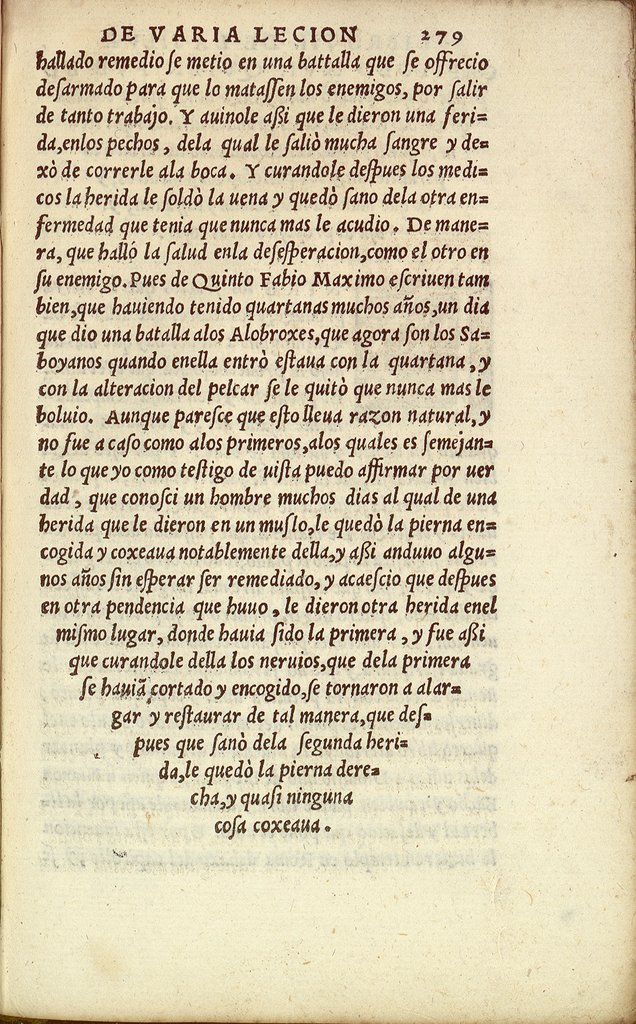 DE VARIA LECION 279
hallado remedio ſe metio en una battalla que ſe offrecio
deſarmado para que lo mataſſen los enemigos, por ſalir
de tanto trabajo. Y auinole aßi que le dieron una feri=
da,enlos pechos, dela qual le ſaliò mucha ſangre y de=
xò de correrle ala boca. Y curandole deſpues los medi=
cos la herida le ſoldò la uena y quedò ſano dela otra en=
fermedad que tenia que nunca mas le acudio. De mane=
ra, que halló la ſalud enla deſeſperacion,como el otro en
ſu enemigo. Pues de Quinto Fabio Maximo eſcriuen tam
bien,que hauiendo tenido quartanas muchos años,un dia
que dio una batalla alos Alobroxes,que agora ſon los Sa=
boyanos quando enella entrò eſtaua con la quartana,y
con la alteracion del pelear ſe le quitò que nunca mas le
boluio. Aunque pareſce que eſto lleua razon natural,y
no fue a caſo como alos primeros,alos quales es ſemejan=
te lo que yo como teſtigo de uiſta puedo affirmar por uer
dad, que conoſci un hombre muchos dias al qual de una
herida que le dieron en un muſlo,le quedò la pierna en=
cogida y coxeaua notablemente della,y aßi anduuo algu=
nos años ſin eſperar ſer remediado, y acaeſcio que deſpues
en otra pendencia que huuo, le dieron otra herida enel
miſmo lugar, donde hauia ſido la primera, y fue aßi
que curandole della los neruios,que dela primera
ſe hauiã cortado y encogido,ſe tornaron a alar=
gar y reſtaurar de tal manera,que deſ=
pues que ſanò dela ſegunda heri=
da,le quedò la pierna dere=
cha,y quaſi ninguna
coſa coxeaua.